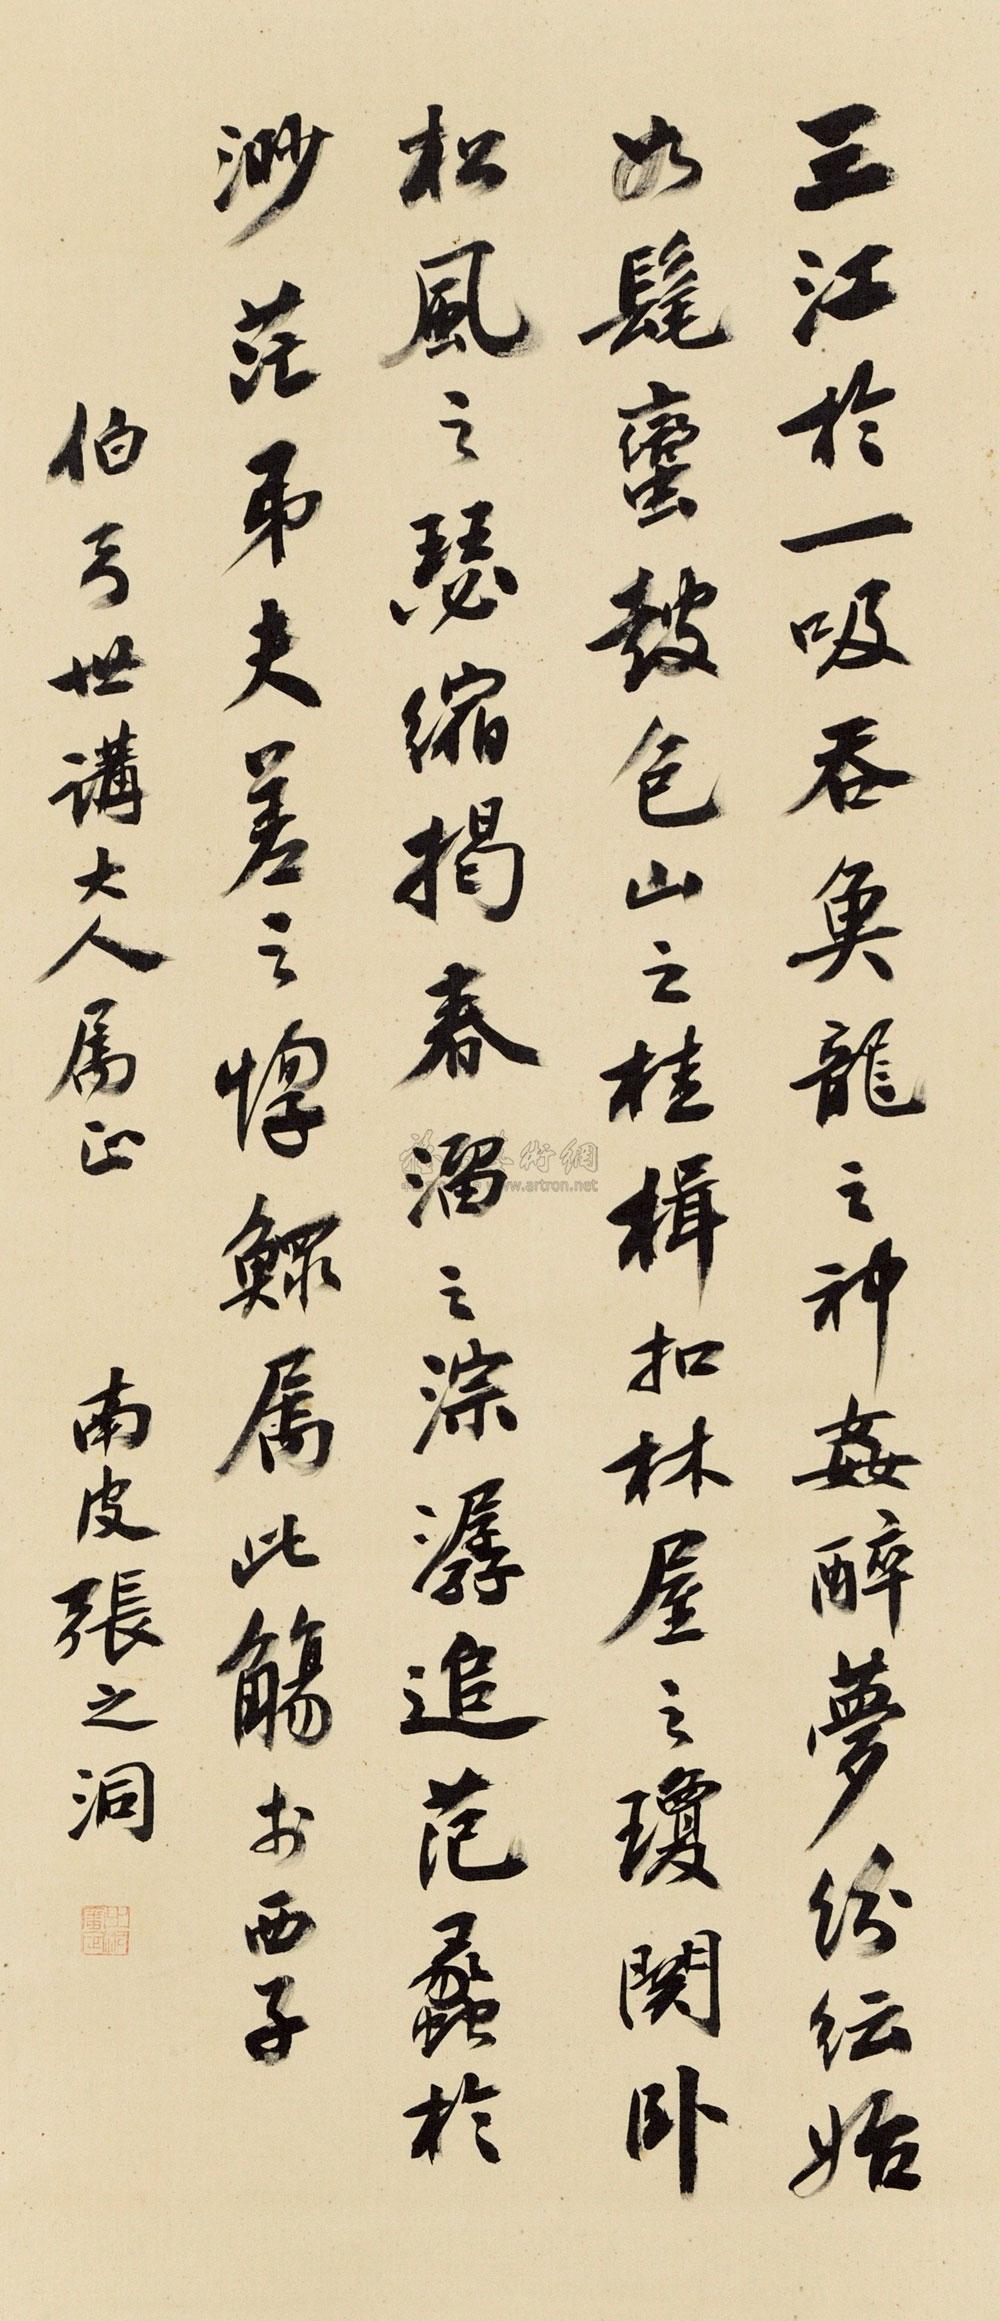 三江於一吸吞魚龍之神姦醉夢紛紜始
如髦蠻鼓包山之桂楫扣林屋之瓊関卧
松風之瑟縮揭春溜之淙潺追范蠡於
渺茫弔夫差之惸鰥屬此觴於西子
伯弓世講大人属正
南皮張之洞
www.artron.net